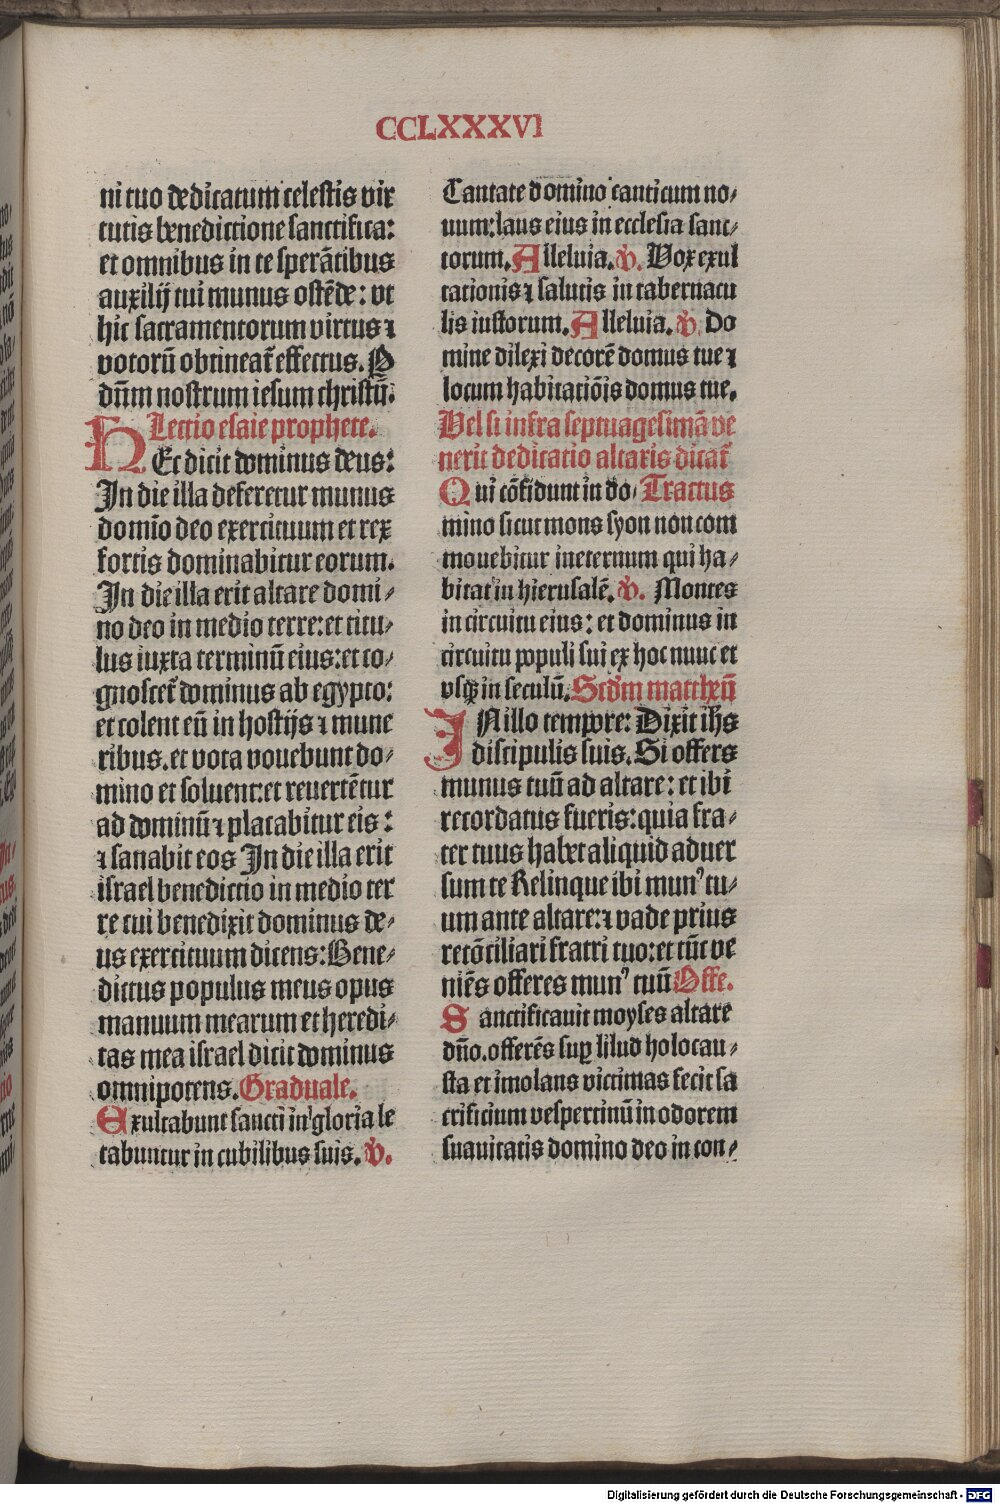 CCLXXXVI
ni tuo dedicatum celestis vir
tutis benedictione sanctifica:
et omnibus in te sperãtibus
auxilij tui munus ostẽde: vt
hic sacramentorum virtus ⁊
votorũ obtineat᷑ effectus. P
dñm nostrum iesum christũ.
Lectio esaie prophete.
HEc dicit dominus deus:
In die illa deferetur munus
domĩo deo exercituum et rex
fortis dominabitur eorum.
In die illa erit altare domi⸗
no deo in medio terre: et titu⸗
lus iuxta terminũ eius: et co⸗
gnoscet᷑ dominus ab egypto:
et colent eũ in hostijs ⁊ mune
ribus. et vota vouebunt do⸗
mino et soluent: et reuertẽtur
ad dominũ ⁊ placabitur eis:
⁊ sanabit eos In die illa erit
israel benedictio in medio ter
re cui benedixit dominus de⸗
us exercituum dicens: Bene⸗
dictus populus meus opus
manuum mearum et heredi⸗
tas mea israel dicit dominus
omnipotens. Graduale.
Exultabunt sancti in gloria le
tabuntur in cubilibus suis. ℣.
Cantate domino canticum no⸗
uum: laus eius in ecclesia sanc⸗
torum. Alleluia. ℣. Vox exul
tationis ⁊ salutis in tabernacu
lis iustorum. Alleluia. ℣. Do
mine dilexi decorẽ domus tue ⁊
locum habitatiõis domus tue.
Vel si infra septuagesimã ve
nerit dedicatio altaris dicat᷑
Qui cõfidunt in do⸗ Tractus
mino sicut mons syon non com
mouebitur ineternum qui ha⸗
bitat in hierusalẽ. ℣. Montes
in circuitu eius: et dominus in
circuitu populi sui ex hoc nunc et
vsq̃ in seculũ. Scdm mattheũ
INillo tempore: Dixit ihs
discipulis suis. Si offers
munus tuũ ad altare: et ibi
recordatus fueris: quia fra⸗
ter tuus habet aliquid aduer
sum te Relinque ibi munꝰ tu⸗
um ante altare: ⁊ vade prius
recõciliari fratri tuo: et tũc ve
niẽs offeres munꝰ tuũ Offe.
Sanctificauit moyses altare
dño. offerẽs suꝑ lilud holocau⸗
sta et imolans victimas fecit sa
crificium vespertinũ in odorem
suauitatis domino deo in con⸗
Digitalisierung gefördert durch die Deutsche Forschungsgemeinschaft - DFG